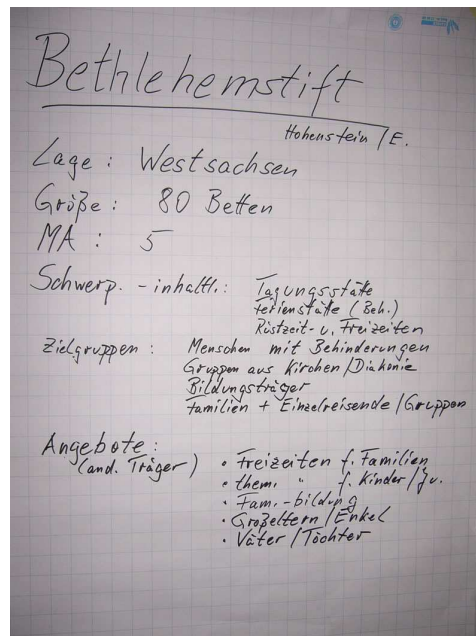 Bethlehemstift
Hohenstein/E.
Lage: Westsachsen
Größe: 80 Betten
MA: 5
Schwerp. - inhaltl.: Tagungsstätte
Ferienstätte (Beh.)
Rüstzeit- u. Freizeiten
Zielgruppen: Menschen mit Behinderungen
Gruppen aus Kirchen/Diakonie
Bildungsträger
Familien + Einzelreisende/Gruppen
Angebote:
(and. Träger) • Freizeiten f. Familien
• them. " f. Kinder/Ju.
• Fam.-bildung
• Großeltern/Enkel
• Väter/Töchter